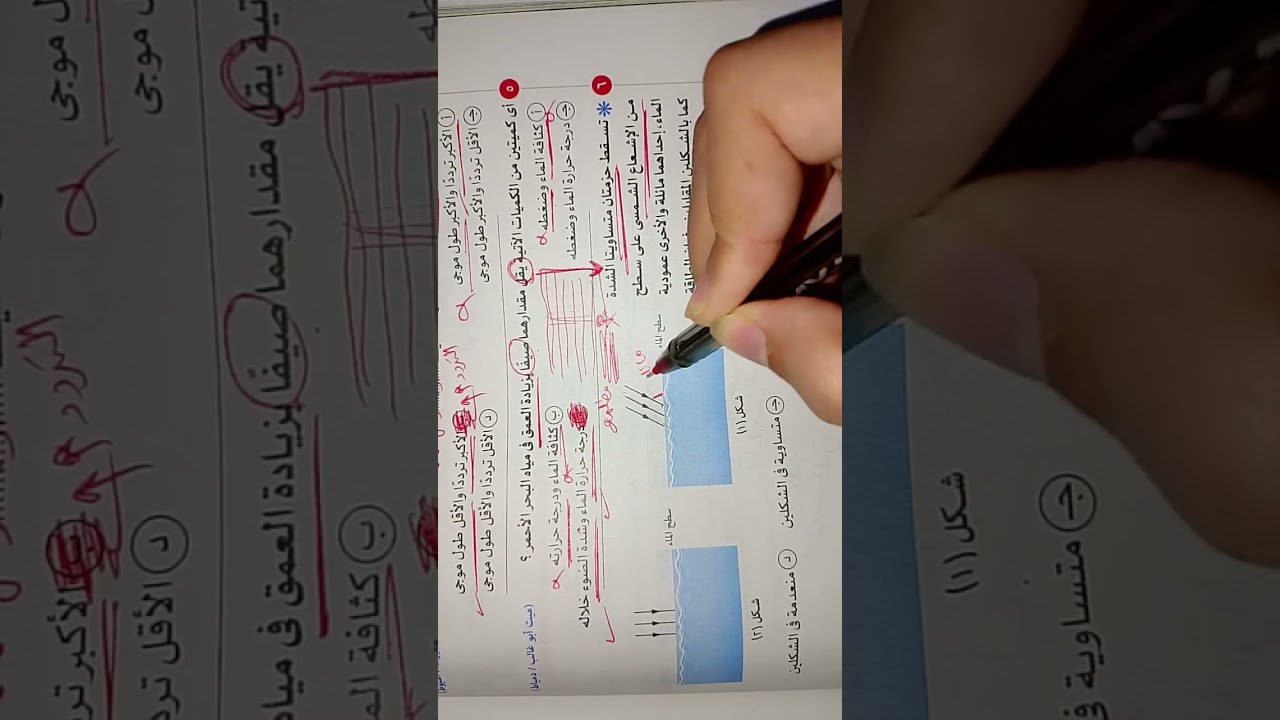 أ الأكبر ترددًا والأكبر طول موجى
ب الأكبر ترددًا والأقل طول موجى
جـ الأقل ترددًا والأكبر طول موجى
د الأقل ترددًا والأقل طول موجى
التردد
٥ أى كميتين من الكميات الآتية يقل مقدارهما صيفًا بزيادة العمق فى مياه البحر الأحمر ؟
(ميت أبو غالب / دمياط)
أ كثافة الماء وضغطه
ب كثافة الماء ودرجة حرارته
جـ درجة حرارة الماء وضغطه
درجة حرارة الماء وشدة الضوء خلاله
٦ * تسقط حزمتان متساويتا الشدة
من الإشعاع الشمسى على سطح
الماء، إحداهما مائلة والأخرى عمودية
كما بالشكلين
سطح الماء
سطح الماء
شكل (١)
شكل (٢)
جـ متساوية فى الشكلين
د منعدمة فى الشكلين